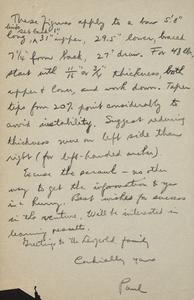 These figures apply to a bow 5'8"
long, 31" upper, 29.5" lower, braced
7 1/2" from back, 27" draw. For 43 lb,
start with 11/16" or 3/4" thickness, both
upper & lower, and work down. Taper
tips for 20% point considerably to
avoid instability. Suggest reducing
thickness more on left side than
right (for left-handed archer).
Excuse the scrawl - no other
way to get the information to you
in a hurry. Best wishes for success
in the venture. Will be interested in
learning results.
Greetings to the Leopold family
Cordially yours
Paul